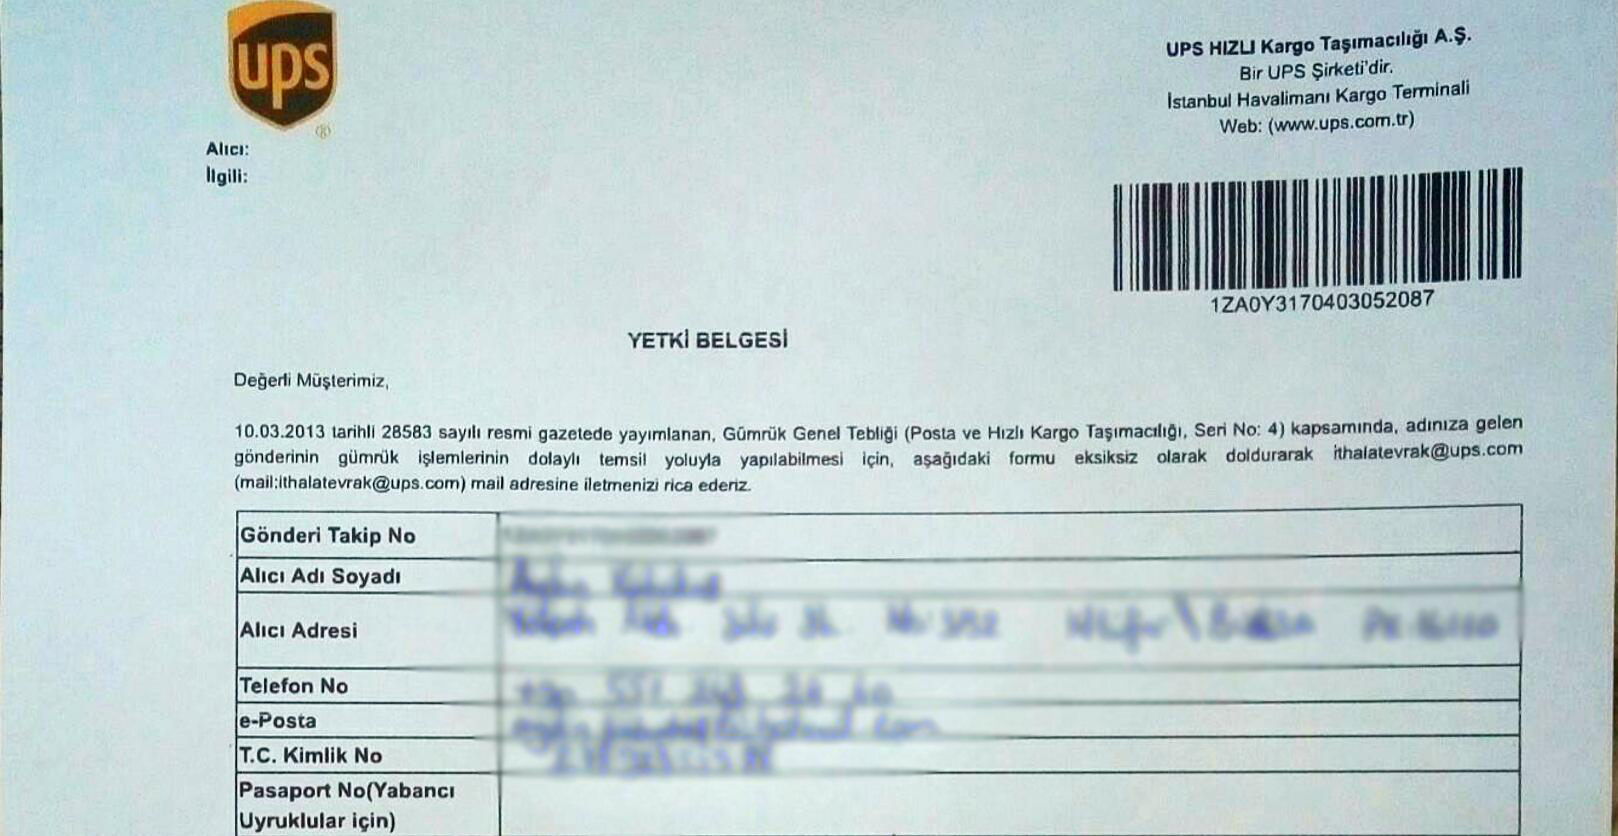 ups
®
UPS HIZLI Kargo Taşımacılığı A.Ş.
Bir UPS Şirketi'dir.
İstanbul Havalimanı Kargo Terminali
Web: (www.ups.com.tr)
Alıcı:
İlgili:
1ZA0Y3170403052087
YETKİ BELGESİ
Değerli Müşterimiz,
10.03.2013 tarihli 28583 sayılı resmi gazetede yayımlanan, Gümrük Genel Tebliği (Posta ve Hızlı Kargo Taşımacılığı, Seri No: 4) kapsamında, adınıza gelen
gönderinin gümrük işlemlerinin dolaylı temsil yoluyla yapılabilmesi için, aşağıdaki formu eksiksiz olarak doldurarak ithalatevrak@ups.com
(mail:ithalatevrak@ups.com) mail adresine iletmenizi rica ederiz.
Gönderi Takip No
Alıcı Adı Soyadı
Alıcı Adresi
Telefon No
e-Posta
T.C. Kimlik No
Pasaport No(Yabancı
Uyruklular için)